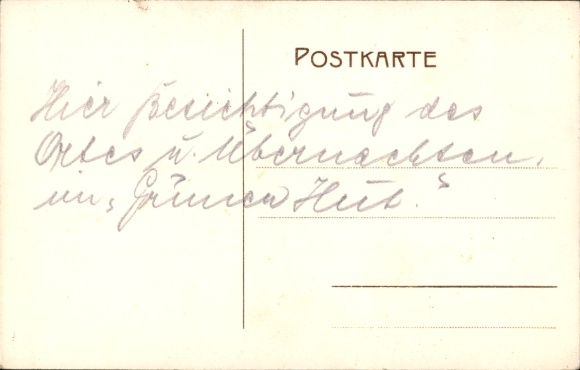 POSTKARTE
Hier Besichtigung des
Ortes u. Übernachten.
im „Grünen Hut."